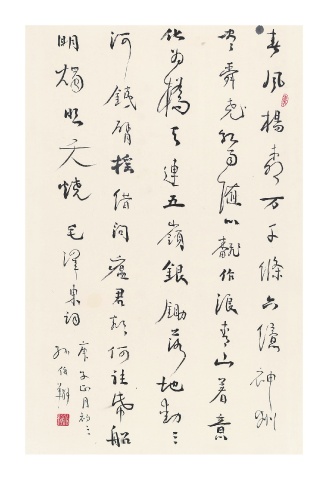 春風楊柳万千條六億神州
尽舜堯紅雨隨心翻作浪青山着意
化為橋天連五嶺銀鋤落地動三
河鐵臂搖借問瘟君欲何往紙船
明燭照天燒 毛澤東詞
庚子正月初三
孫伯翔